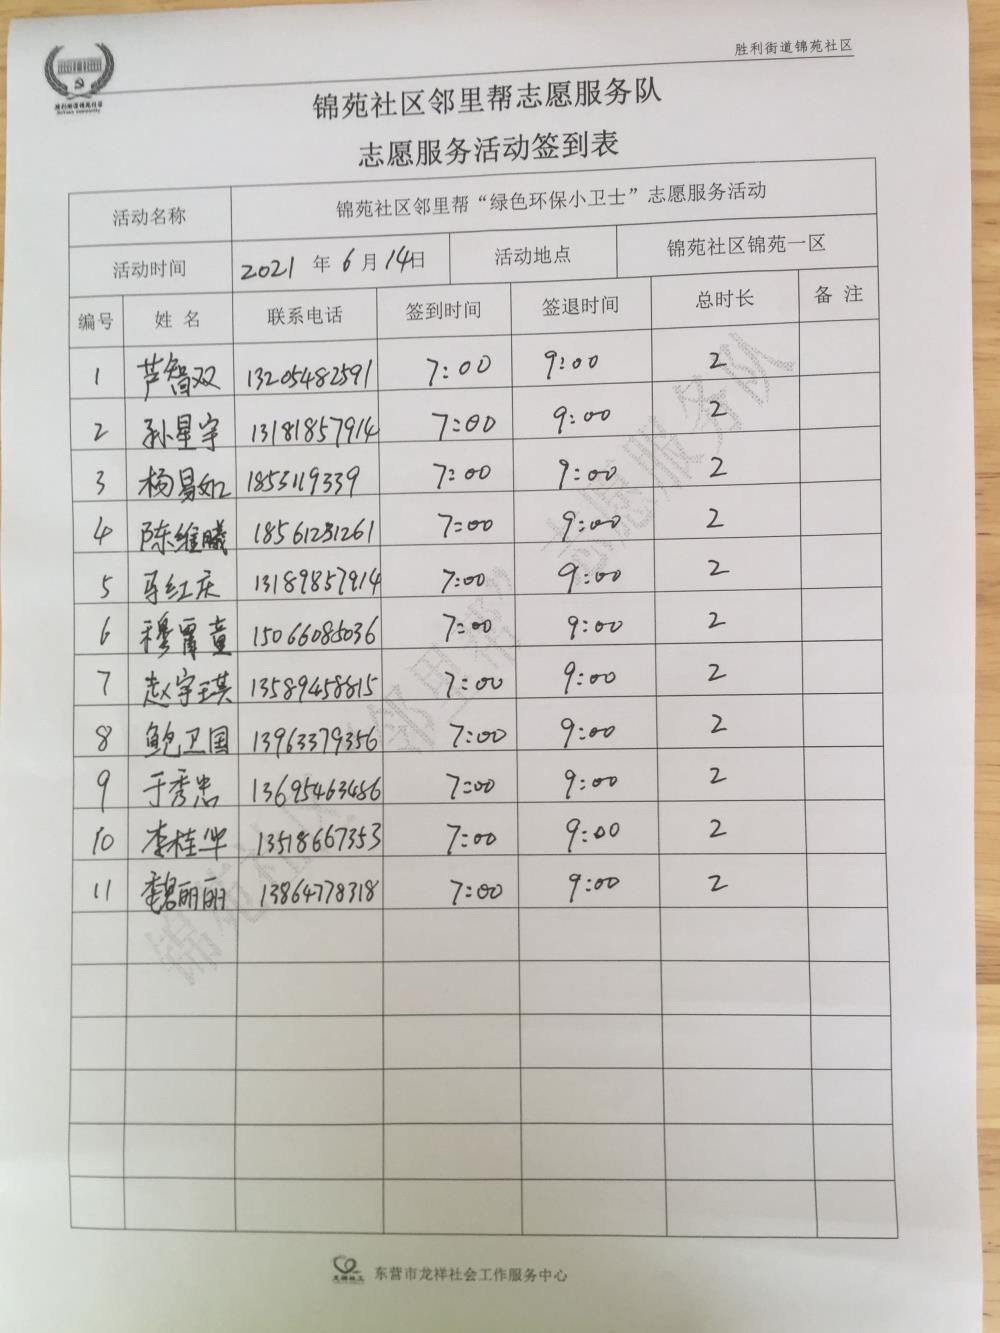 胜利街道锦苑社区
锦苑社区邻里帮志愿服务队
志愿服务活动签到表
活动名称 锦苑社区邻里帮“绿色环保小卫士”志愿服务活动
活动时间 2021年6月14日 活动地点 锦苑社区锦苑一区
编号 姓名 联系电话 签到时间 签退时间 总时长 备注
1 芦智双 13205482591 7:00 9:00 2
2 孙星宇 13181857914 7:00 9:00 2
3 杨易如 1853119339 7:00 9:00 2
4 陈维曦 18561231261 7:00 9:00 2
5 马红庆 13189857914 7:00 9:00 2
6 穆霄童 15066085036 7:00 9:00 2
7 赵宇琪 13589458815 7:00 9:00 2
8 鲍卫国 13963379356 7:00 9:00 2
9 于秀忠 13695463486 7:00 9:00 2
10 李桂华 13518667353 7:00 9:00 2
11 魏丽丽 13864778318 7:00 9:00 2
锦苑社区“邻里帮”志愿服务队
东营市龙祥社会工作服务中心